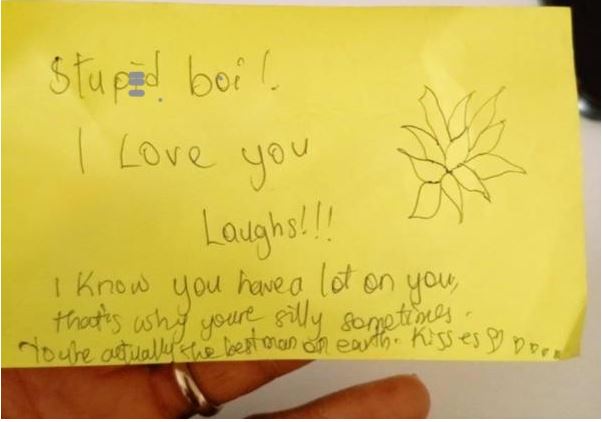 Stupid boi!.
I Love you
Laughs!!!
I know you have a lot on you,
that's why youre silly sometimes.
You're actually the best man on earth. Kisses